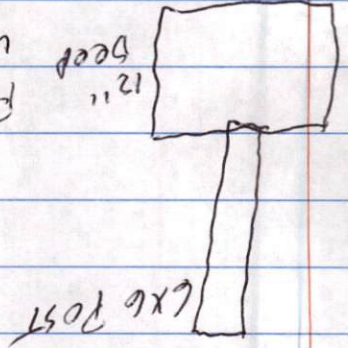 6x6 POST
12"
DEEP